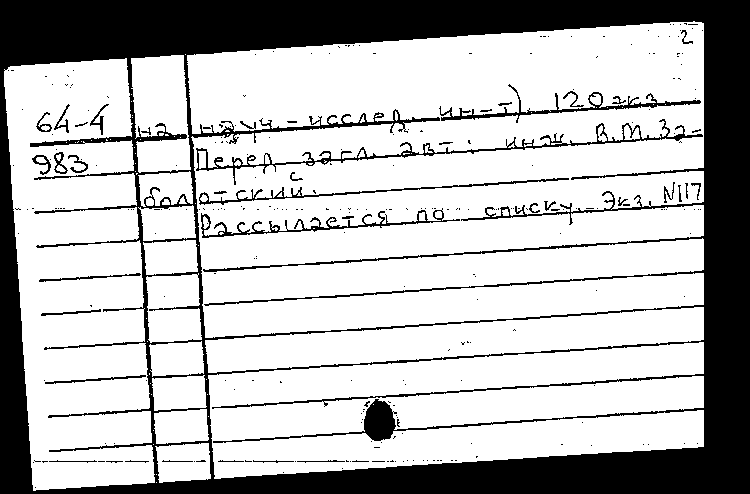 2
64-4 на науч-исслед. ин-т). 120 экз.
983 Перед загл. авт: инж. В.М. За-
болотский.
Рассылается по списку. Экз. №117